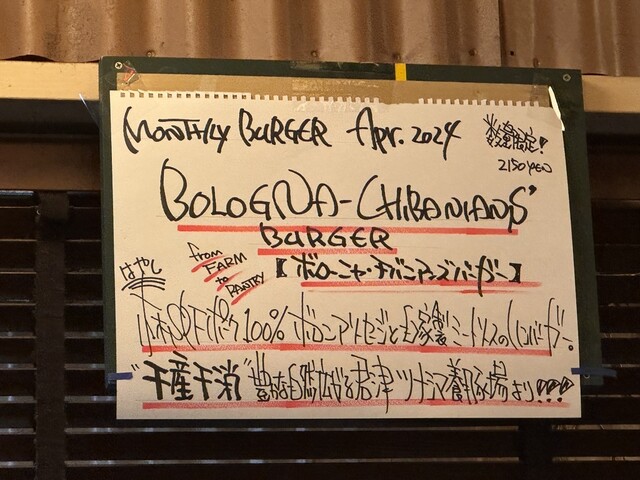 MONTHLY BURGER Apr. 2024
数量限定!
2150YEN
BOLOGNA-CHIBANIANS'
BURGER
from FARM to PANTRY
【ボローニャ・チバニアンズバーガー】
はやし
林SPFポーク100% ボロニアソーセージと自家製ミートソースのハンバーガー。
"千産千消" 豊かな自然広がる君津 ツナシマ養豚場より!!!